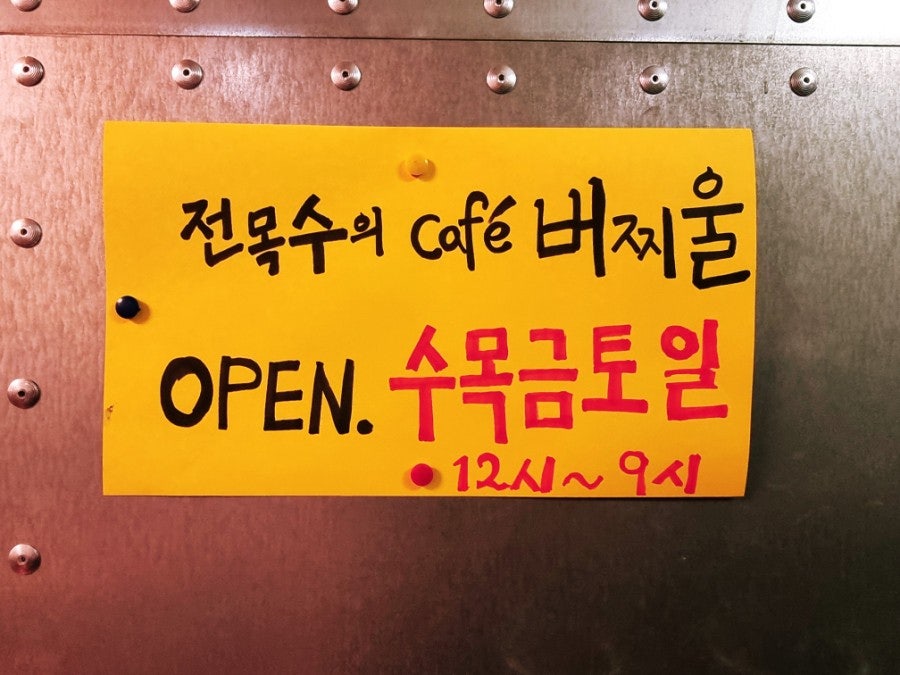 전목수의 café 버찌울
OPEN. 수목금토일
12시~9시